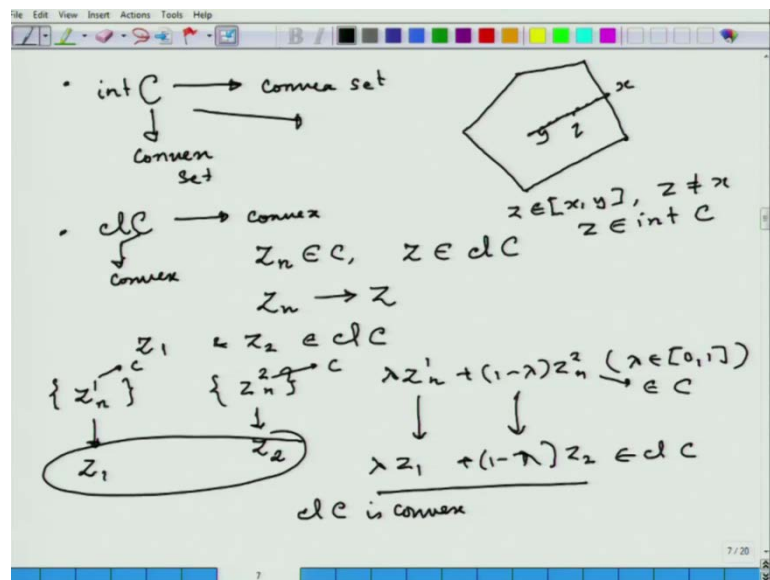 File Edit View Insert Actions Tools Help
• int C → convex set
convex
set
x
y
z
z ∈ [x, y], z ≠ x
z ∈ int C
• cl C → convex
convex
z_n ∈ C, z ∈ cl C
z_n → z
z_1 & z_2 ∈ cl C
{z_n^1} → C {z_n^2} → C λz_n^1 + (1-λ)z_n^2 (λ ∈ [0,1])
→ ∈ C
z_1 z_2 λz_1 + (1-λ)z_2 ∈ cl C
cl C is convex
7/20
7